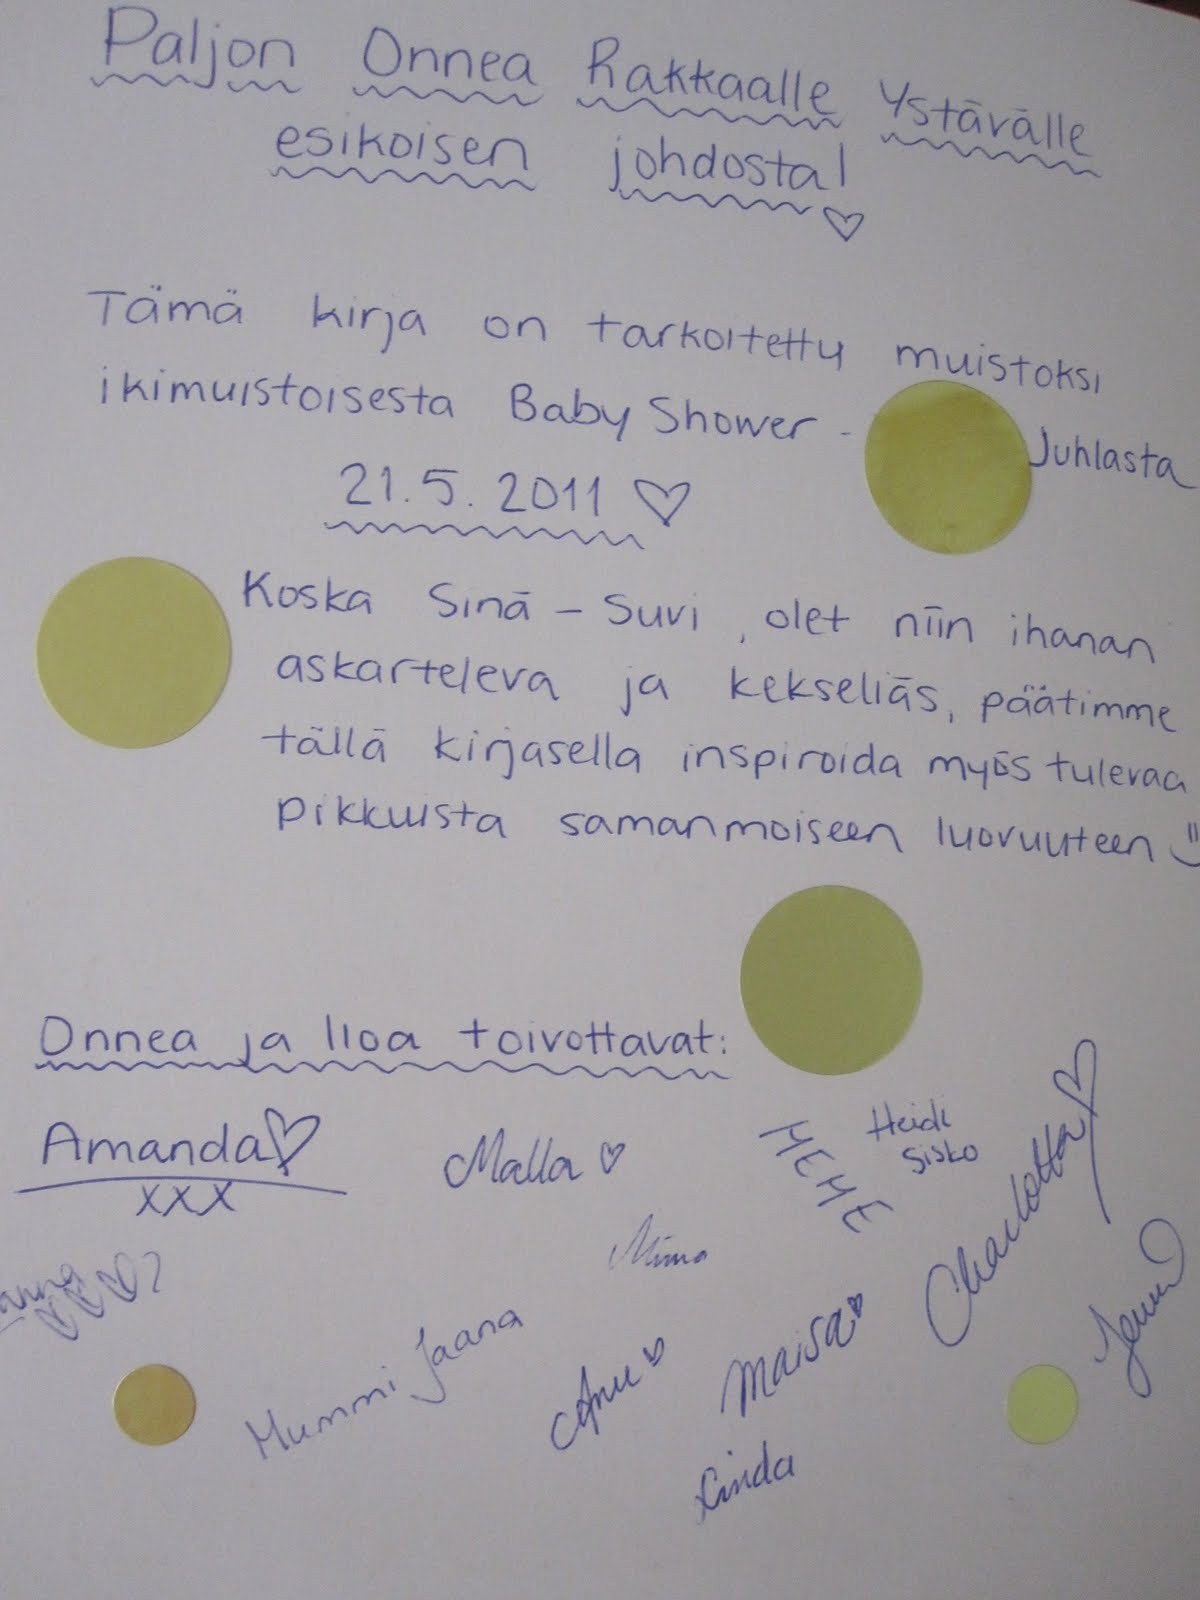 Paljon Onnea Rakkaalle Ystävälle
esikoisen johdosta! ♡
Tämä kirja on tarkoitettu muistoksi
ikimuistoisesta Baby Shower - Juhlasta
21.5.2011 ♡
Koska Sinä - Suvi, olet niin ihanan
askarteleva ja kekseliäs, päätimme
tällä kirjasella inspiroida myös tulevaa
pikkuista samanmoiseen luovuuteen :)
Onnea ja iloa toivottavat:
Amanda ♡
XXX
Malla ♡
MEME
Heidi
Sisko
Charlotta ♡
Mummi Jaana
Anu ♡
Maisa ♡
Linda